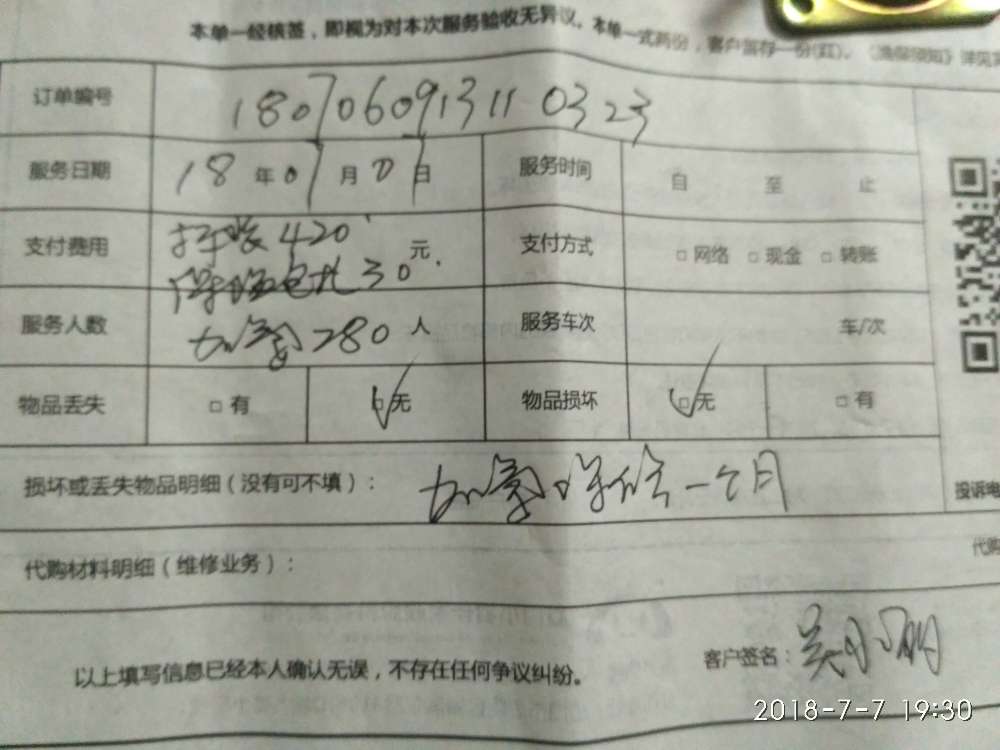 本单一经核签，即视为对本次服务验收无异议。本单一式两份，客户留存一份(红)。
订单编号 180706091311 0323
服务日期 18 年 07 月 07 日 服务时间 自 至 止
支付费用 拆装 420 元. 支付方式 □ 网络 □ 现金 □ 转账
30
服务人数 加氟 280 人 服务车次 车/次
物品丢失 □ 有 □ 无 物品损坏 □ 无 □ 有
损坏或丢失物品明细（没有可不填）： 加氟保修一个月
投诉电
代购材料明细（维修业务）： 代购
以上填写信息已经本人确认无误，不存在任何争议纠纷。 客户签名：
2018-7-7 19:30